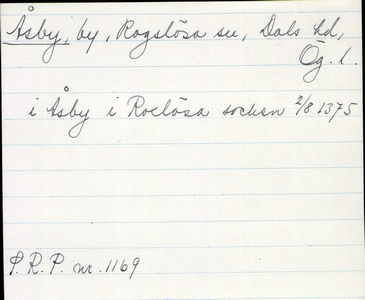 Åsby, by, Rogslösa sn, Dals hd,
Ög. l.
i Åsby i Roxlösa socken 2/8 1375
P. R. P. nr. 1169